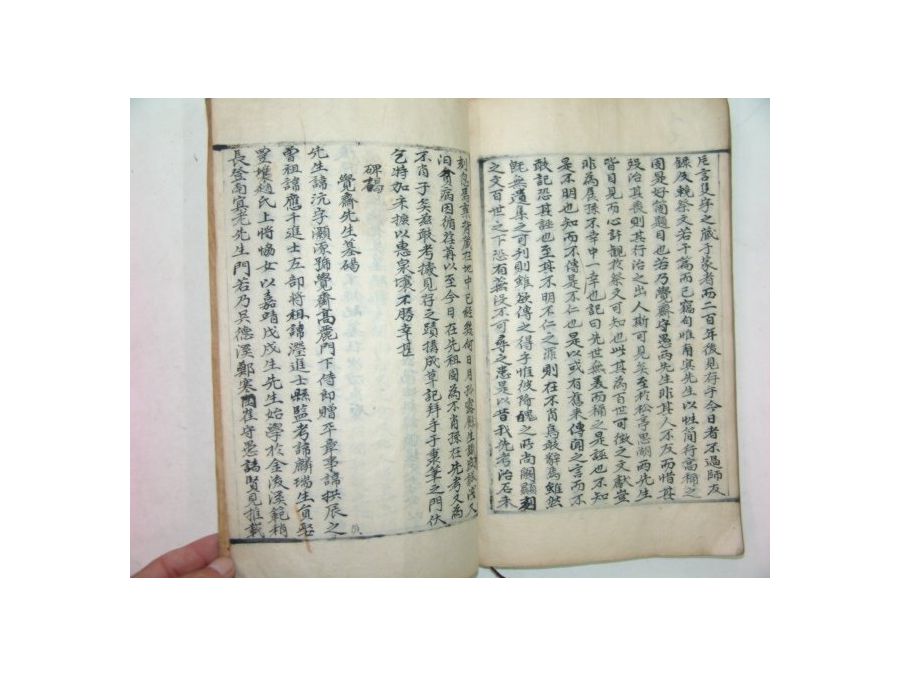 片言隻字之藏于家者而二百年後見存乎今日者不過師友
錄及輓祭文若干篇而已竊向唯南冥先生以性簡行高稱之
固是好箇題目也若乃覺齋守愚兩先生非其人不友而惜其
歿治其喪則其行治之出人斯可見矣至於松亭思湖兩先生
皆目見而心許觀於祭文可知也此其為百世可徵之文獻豈
非為孱孫不幸中一幸也記曰先世無美而稱之是誣也不知
是不明也知而不傳是不仁也是以或有舊來傳聞之言而不
敢記恐其誣也至其不明不仁之罪則在不肖焉敢辭焉雖然
既無遺集之可刊則雖欲傳之得乎惟彼隧醜之所尚闕顯刻
之文百世之下恐有無沒不可尋之患是以昔我先考治石未
刻 藏在地中已經幾何日月 又
汨貧病因循荏苒以至今日在先祖固為不肖孫在先考又為
不肖子矣玆敢考據見存之蹟搆成草記拜手于秉筆之門伏
乞特加采摭以惠泉壤不勝幸甚
碑碣
覺齋先生墓碣
先生諱沆字灝源號覺齋高麗門下侍郎贈平章事諱拱辰之
曾祖諱應千進士五部將祖諱瀅進士縣監考諱麟瑞生員娶
豐壤趙氏上將 女以嘉靖戊戌生先生始學於金浚溪範稍
長登南冥老先生門若乃吳德溪鄭寒岡崔守愚諸賢見推戴